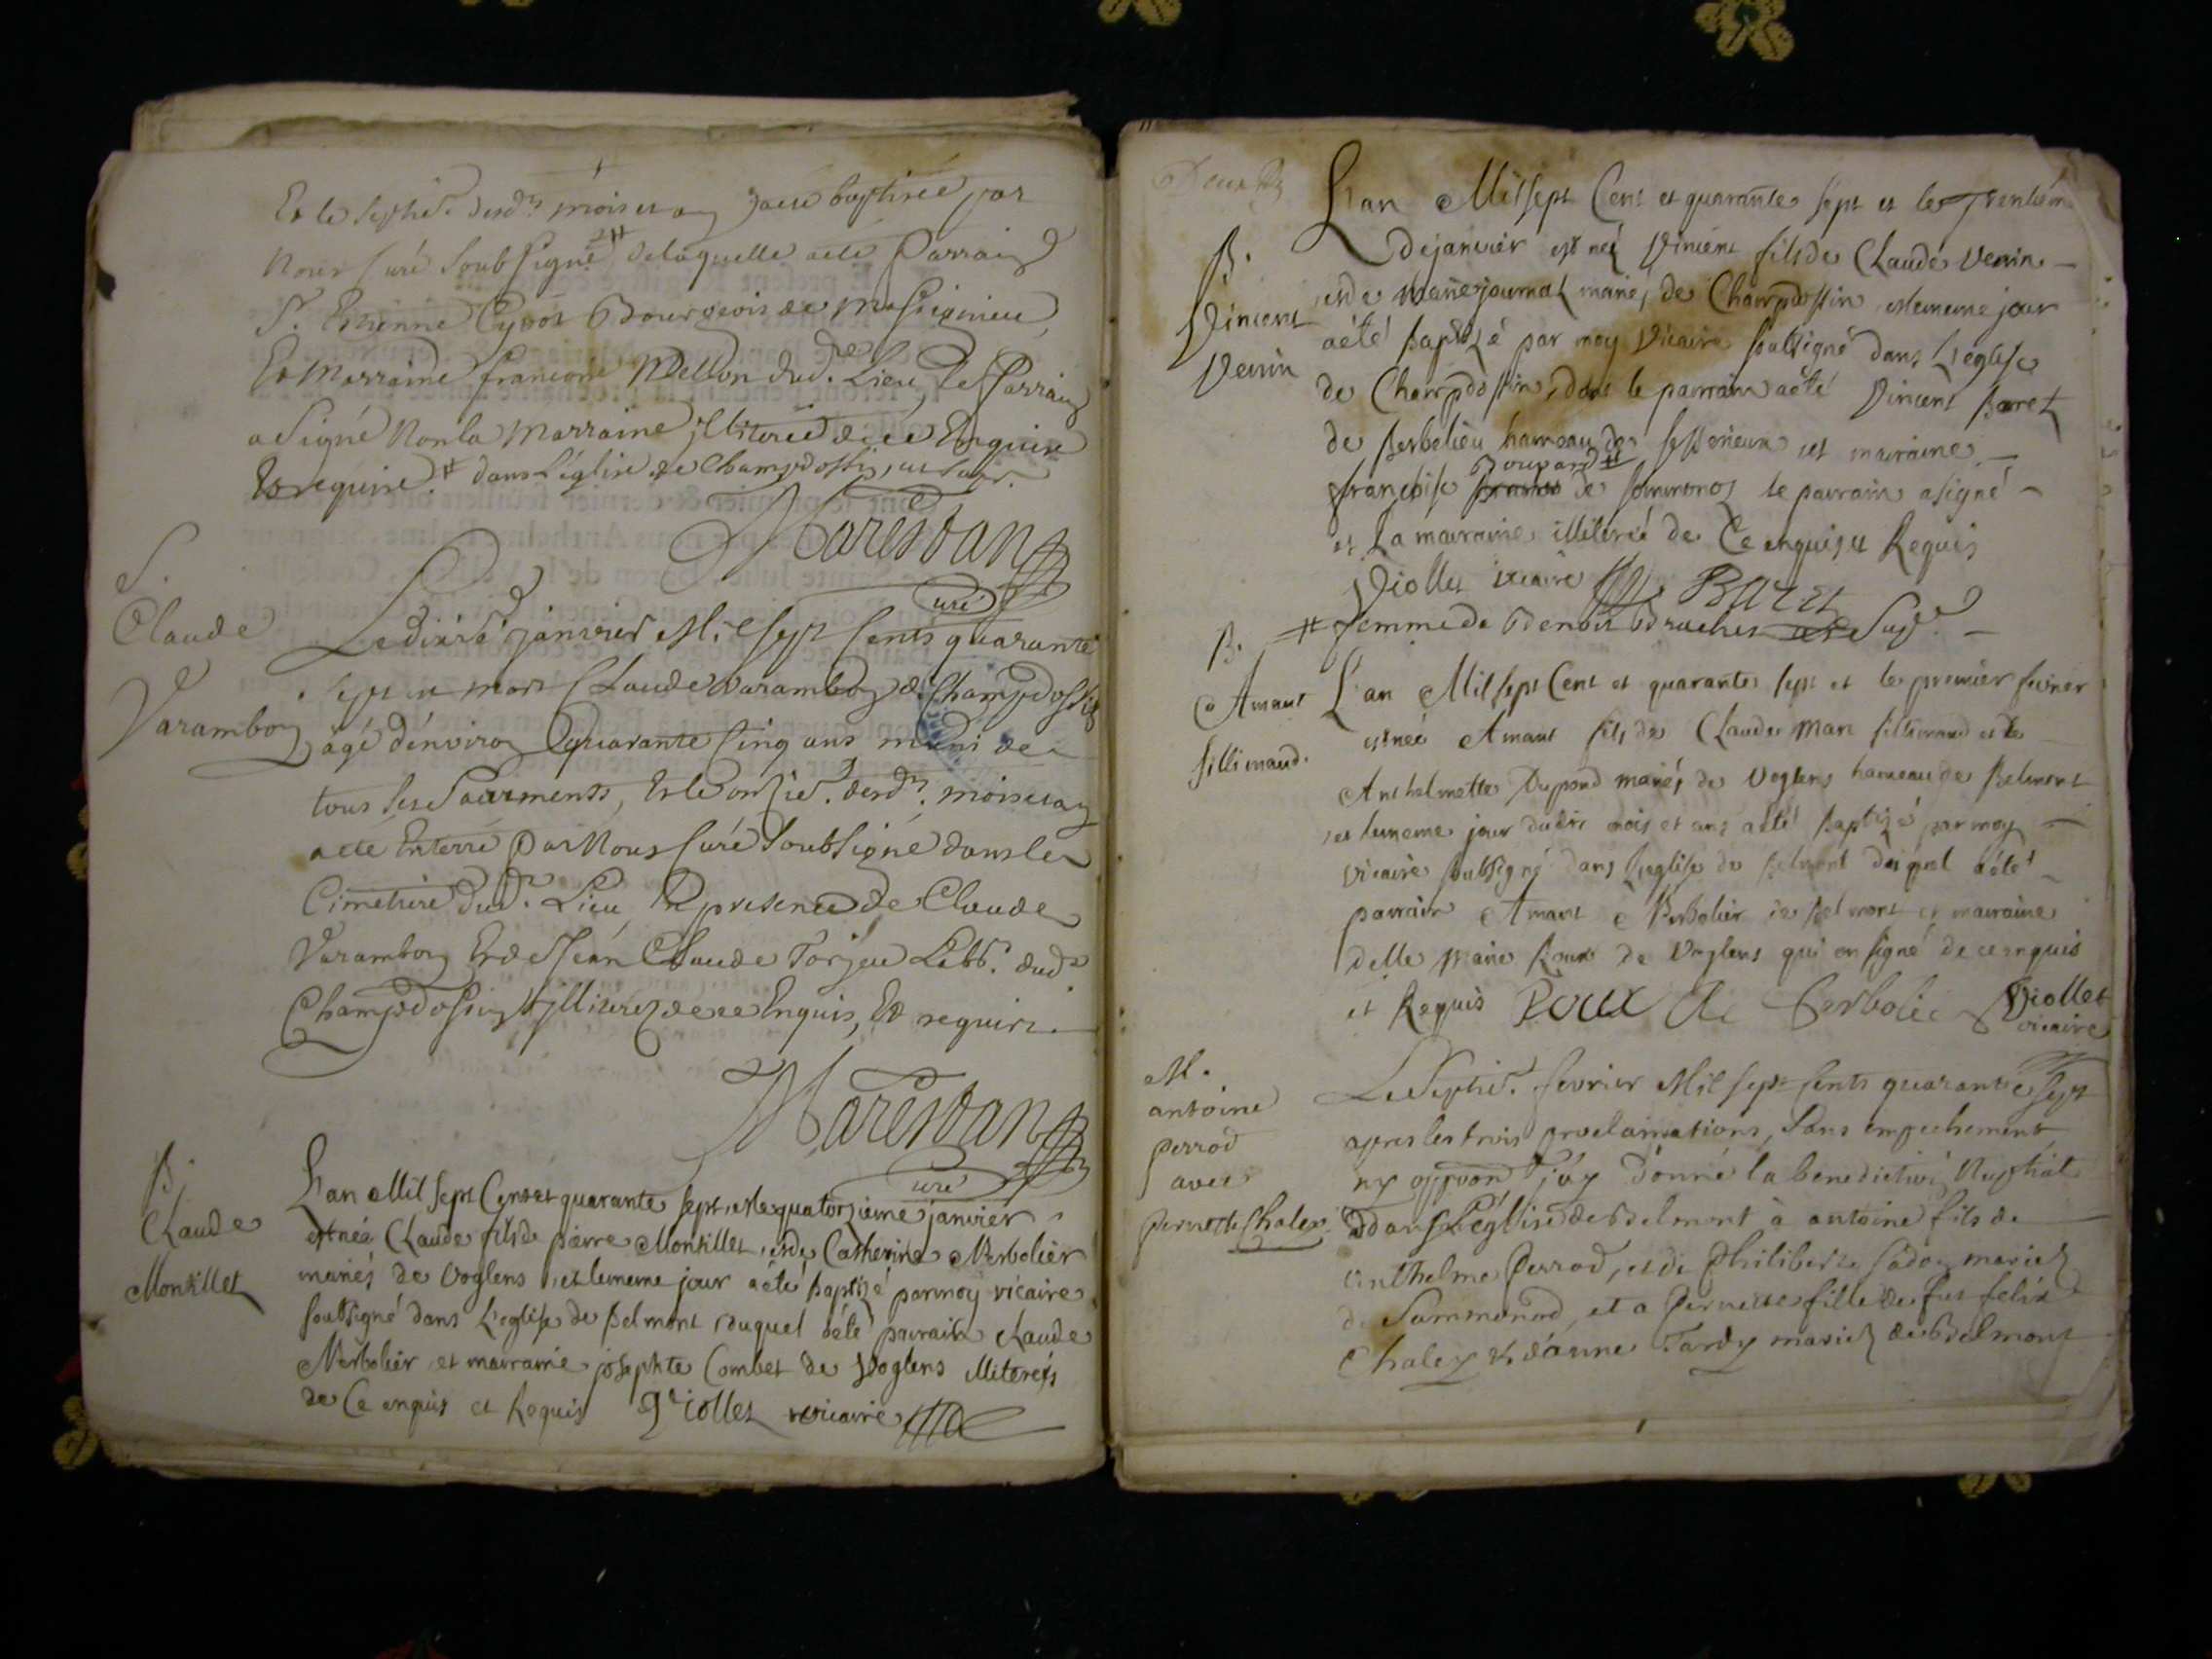 Et le septie. desd. mois et an, a eté baptisée par
Nous Curé soubsigné # de laquelle a eté Parrain
Sr. Estienne Cyvot Bourgeois de Massignieu,
Et Marraine francoise Mellon dud. Lieu, Le Parrain
a signé Non la Marraine jlliterée de ce Enquise
Et requise. # dans l'église de Champdossin,
Marestan
Curé
S.
Claude
Varambon
Le dixie. janvier Mil sept Cents quarante
sept est mort Claude Varambon de Champdossin
âgé d'environ quarante Cinq ans muni de
tous les Sacrements, Et le onzie. desd. mois et an
a eté Enterré Par Nous Curé Soubsigné dans le
Cimetiere dud. Lieu En presence de Claude
Varambon Et de Jean Claude Torjeu Labr. dud.
Champdossin jlliterez de ce Enquis, Et requis.
Marestan
Curé
B.
Claude
Montillet
L'an Mil sept Cent et quarante sept, et le quatorzieme janvier
est née Claude fils de pierre Montillet, et de Catherine Merbolier
mariés de Voglens, et le meme jour a été baptizé par moy vicaire
soubsigné dans L'eglise de Belmont, duquel a été parrain Claude
Merbolier et mairaine josephte Combet de Voglens illiterés
de Ce enquis et Requis Viollet vicaire
B.
Vincent
Venin
L'an Mil sept Cent et quarante sept et le Trentiem
de janvier est né Vincent fils de Claude Venin
et de marie journal mariés de Champdossin, et le meme jour
a été baptizé par moy Vicaire soubsigné dans L'eglise
de Champdossin, dont le parrain a été Vincent Baret
de Berbolieu hameau de et mairaine
françoise Bouvard # de sommonoz le parrain a signé
et La mairaine illiterée de Ce enquis et Requis
Viollet vicaire Baret
# femme de Benoit Bruchet
B.
Amant
fillimand.
L'an Mil sept Cent et quarante sept et le premier fevrier
est née Amant fils de Claude Marc fillimand et de
Anthelmette Dupond mariés de Voglens hameau de Belmont
et le meme jour dudit mois et ans a été baptizé par moy
vicaire soubsigné dans L'eglise de Belmont duquel a été
parrain Amant Merbolier de Belmont et mairaine
delle marie Roux de Voglens qui on signé de ce enquis
et Requis Roux Viollet
vicaire
M.
antoine
perrod
avec
pernette Chaley
Le Septie. fevrier Mil sept Cents quarante sept
apres les trois proclamations, Sans empechement
ny opposon. j'ay donné la benediction Nuptiale
dans L'église de Belmont à antoine fils de
anthelme Perrod, et de Philiberte Cadoz mariez
de Sammonod, et a Pernette fille de fut felix
Chaley et d'anne Tardy mariez de Belmont